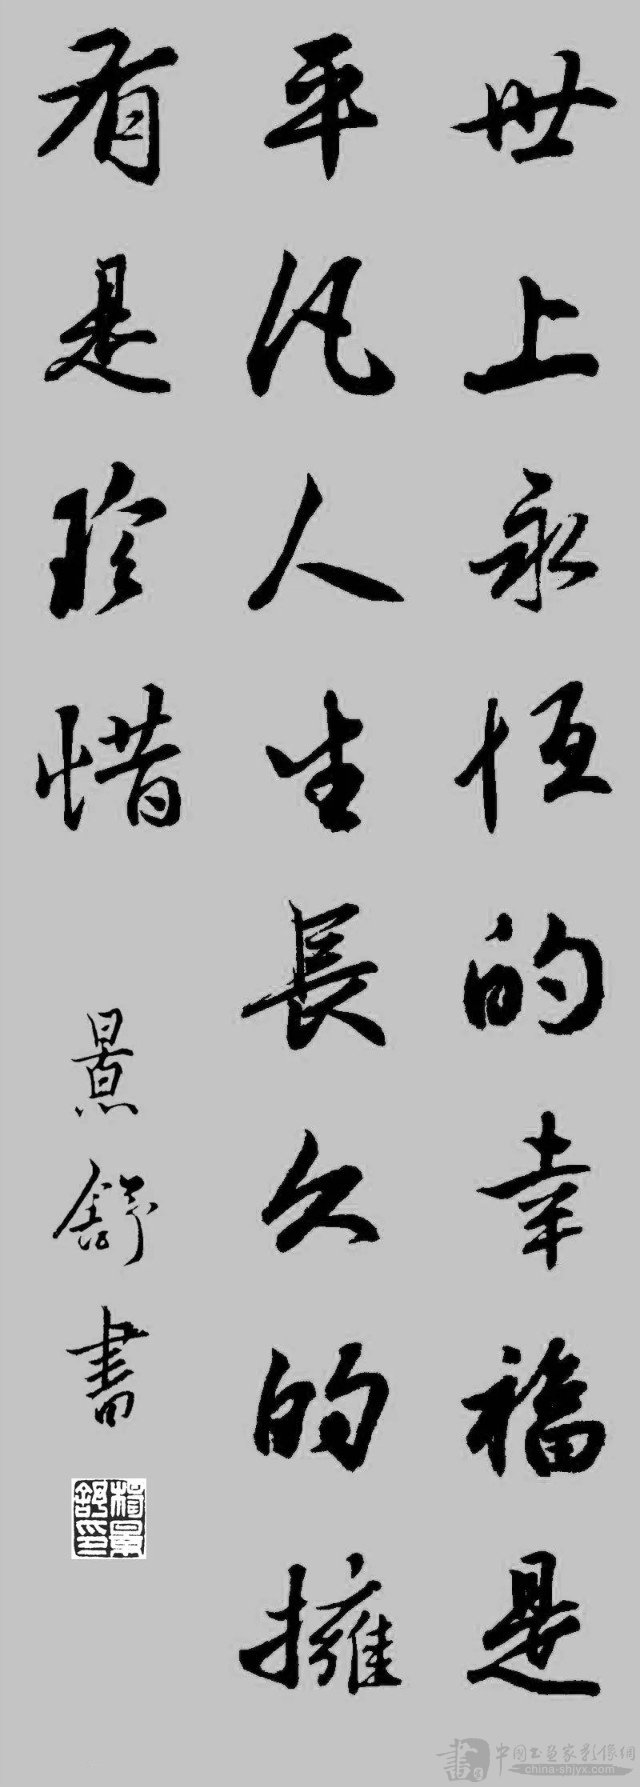 世上永恆的幸福是
平凡人生長久的擁
有是珍惜
景舒書
楊景舒印
書 中國書畫家影像網
china-shjyx.com